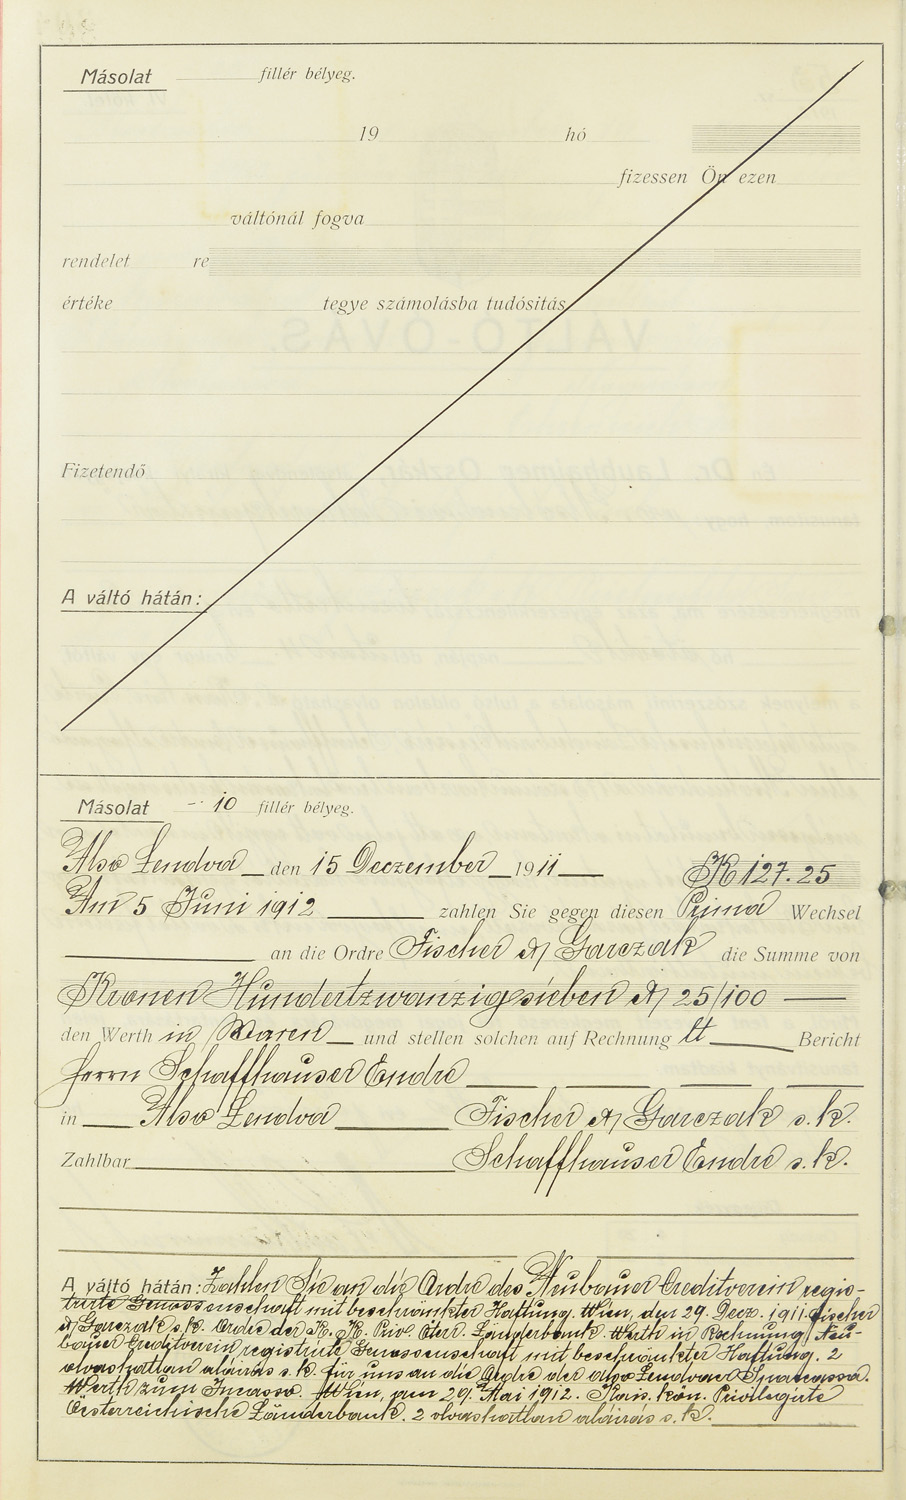 Másolat fillér bélyeg.
19 hó
fizessen Ön ezen
váltónál fogva
rendelet re
értéke tegye számolásba tudósitás
Fizetendő
A váltó hátán:
Másolat 10 fillér bélyeg.
Alsó Lendva den 15 Deczember 1911 K 127.25
Am 5 Juni 1912 zahlen Sie gegen diesen Prima Wechsel
an die Ordre Fischer & Garczak die Summe von
Kronen Hundertzwanzigsieben & 25/100
den Werth in Waren und stellen solchen auf Rechnung lt Bericht
Herrn Schaffhauser Endre
in Alsó Lendva Fischer & Garczak s.k.
Zahlbar Schaffhauser Endre s.k.
A váltó hátán: Zahlen Sie an die Ordre des Neubauer Creditverein regis-
trirte Genossenschaft mit beschränkter Haftung. Wien, den 29. Dez. 1911. Fischer
& Garczak s.k. Ordre der K. K. Priv. Österr. Länderbank. Werth in Rechnung Neu-
bauer Creditverein registrirte Genossenschaft mit beschränkter Haftung. 2
olvashatlan aláirás s.k. für uns an die Ordre der Alsó Lendvaer Sparcassa.
Werth zum Incasso. Wien, am 29. Mai 1912. Kais. kön. Privilegirte
Oesterreichische Länderbank. 2 olvashatlan aláirás s.k.